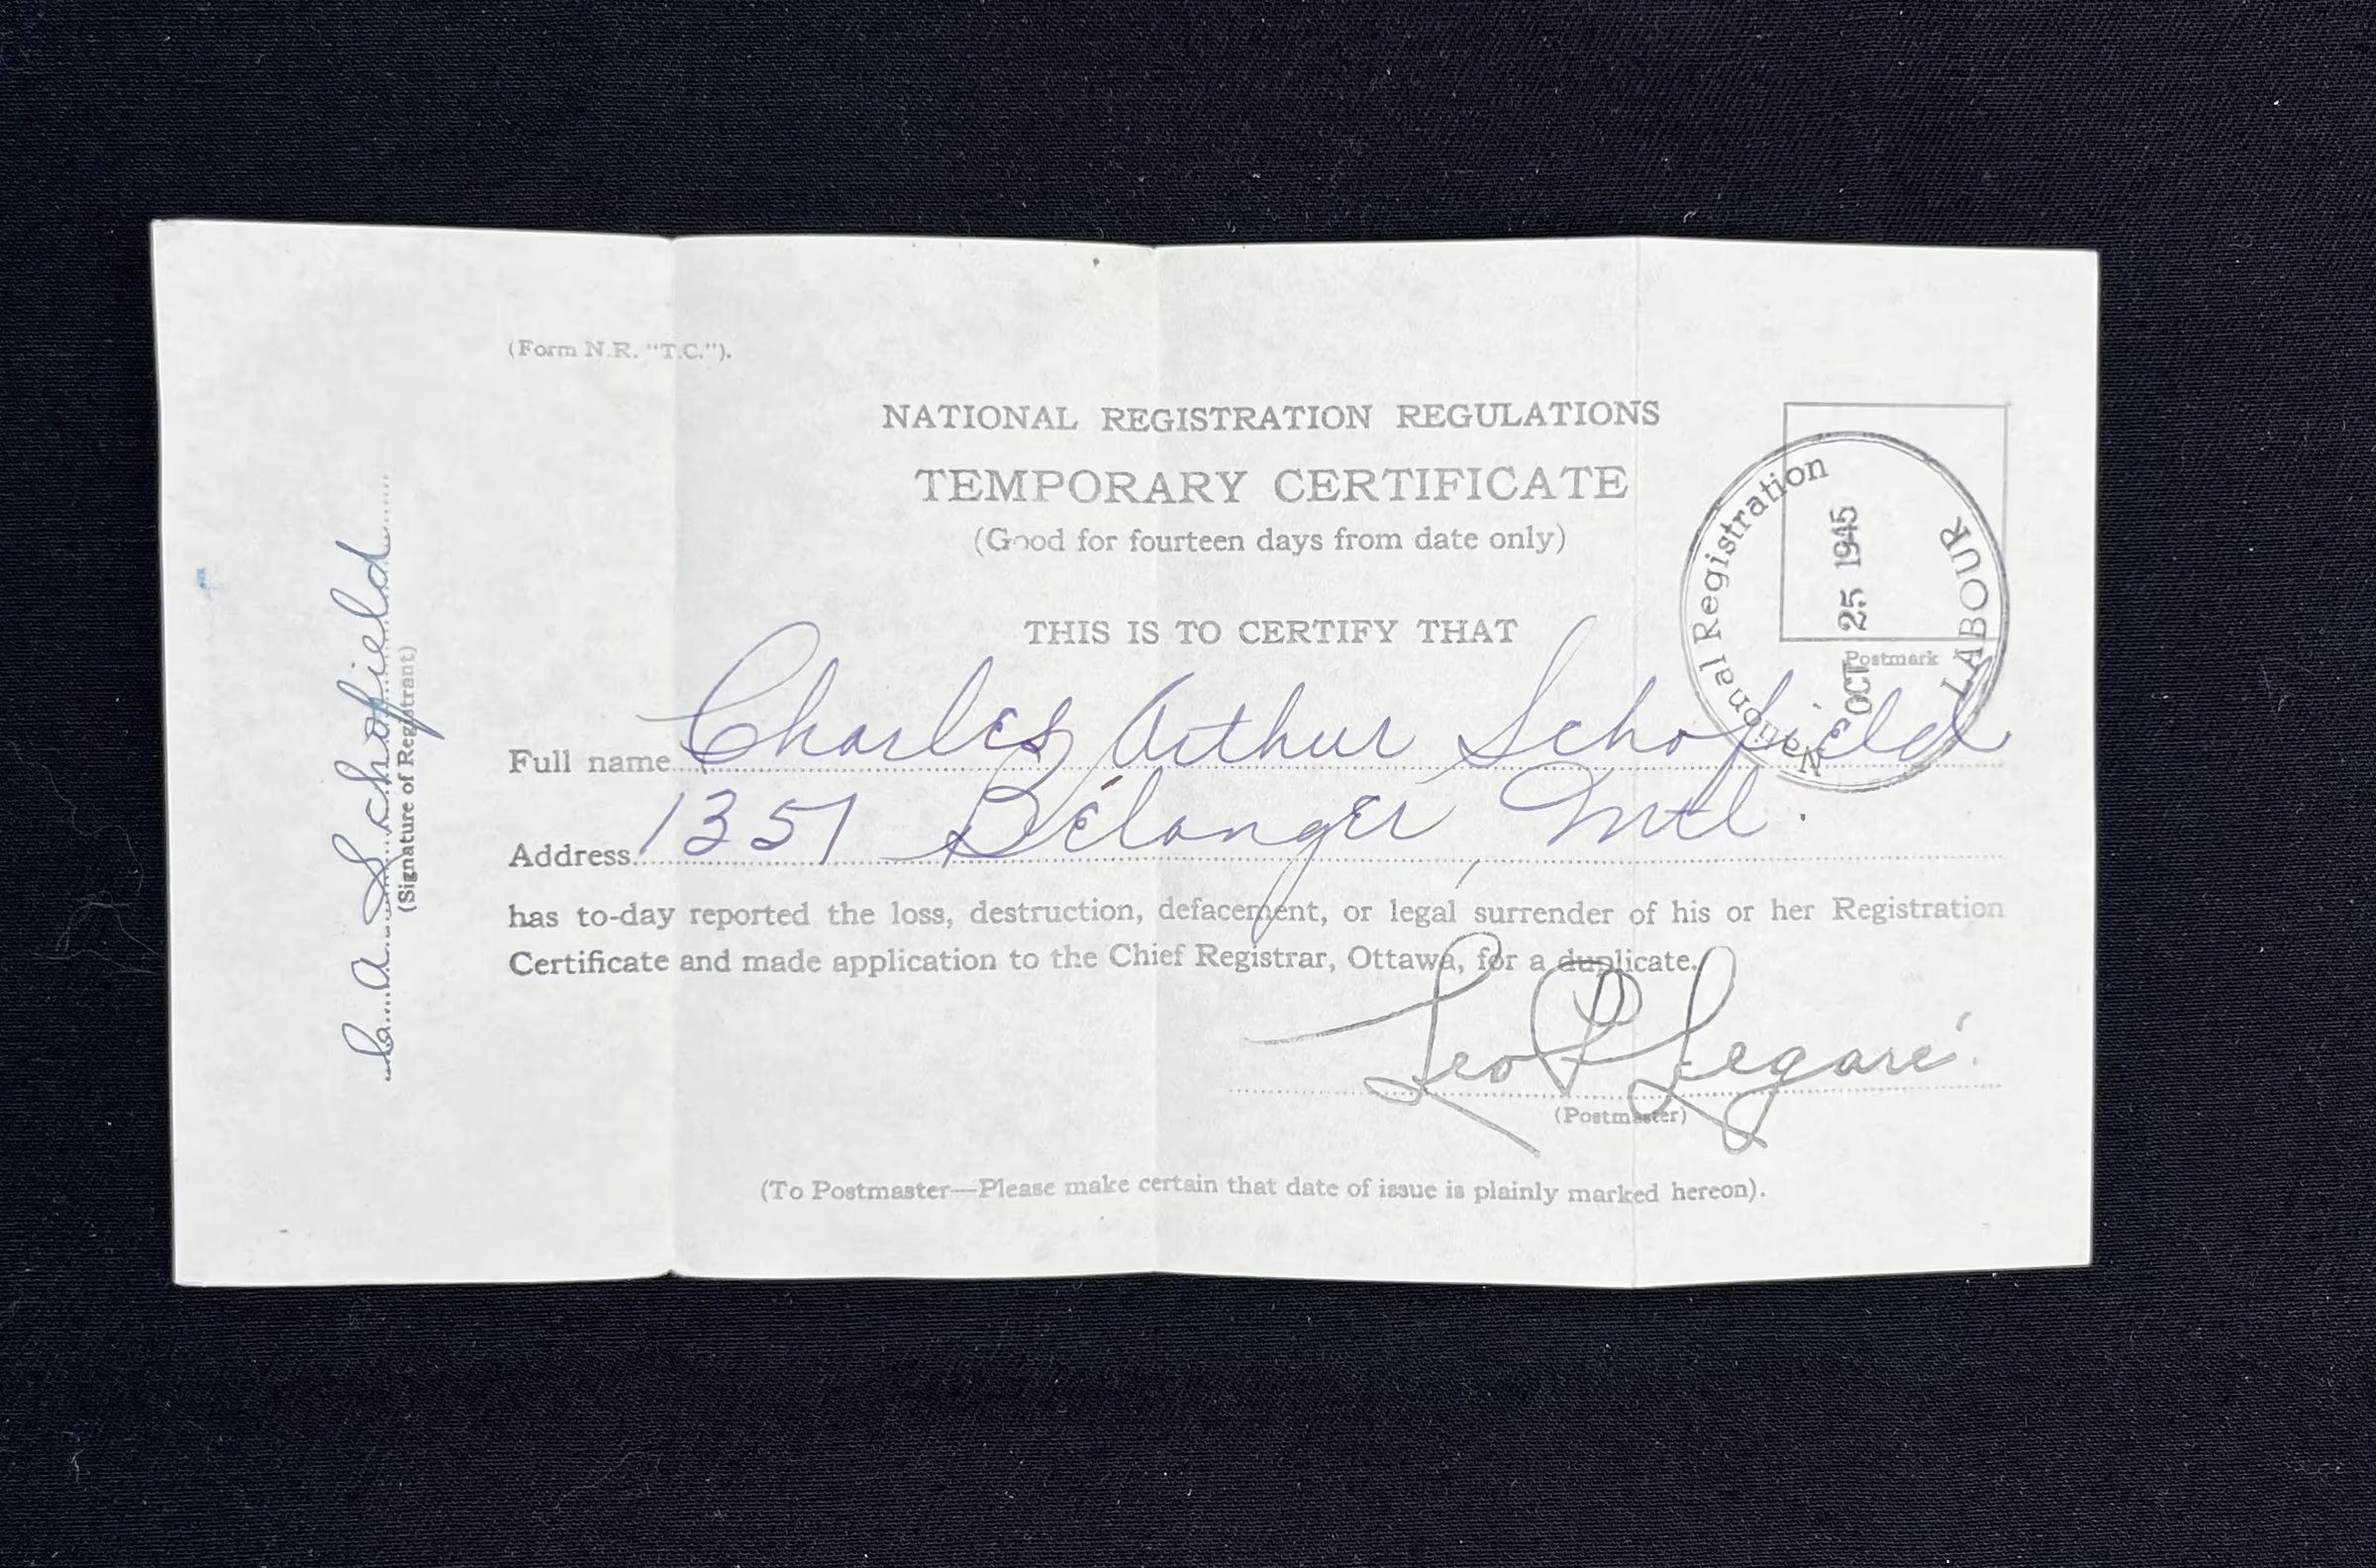 (Form N.R. "T.C.").
NATIONAL REGISTRATION REGULATIONS
TEMPORARY CERTIFICATE
(Good for fourteen days from date only)
National Registration
OCT 25 1945
LABOUR
Postmark
THIS IS TO CERTIFY THAT
Full name Charles Arthur Schofield
Address 1351 Bélanger, Mtl.
has to-day reported the loss, destruction, defacement, or legal surrender of his or her Registration
Certificate and made application to the Chief Registrar, Ottawa, for a duplicate.
Leo P Legaré
(Postmaster)
(To Postmaster—Please make certain that date of issue is plainly marked hereon).
C. A. Schofield
(Signature of Registrant)